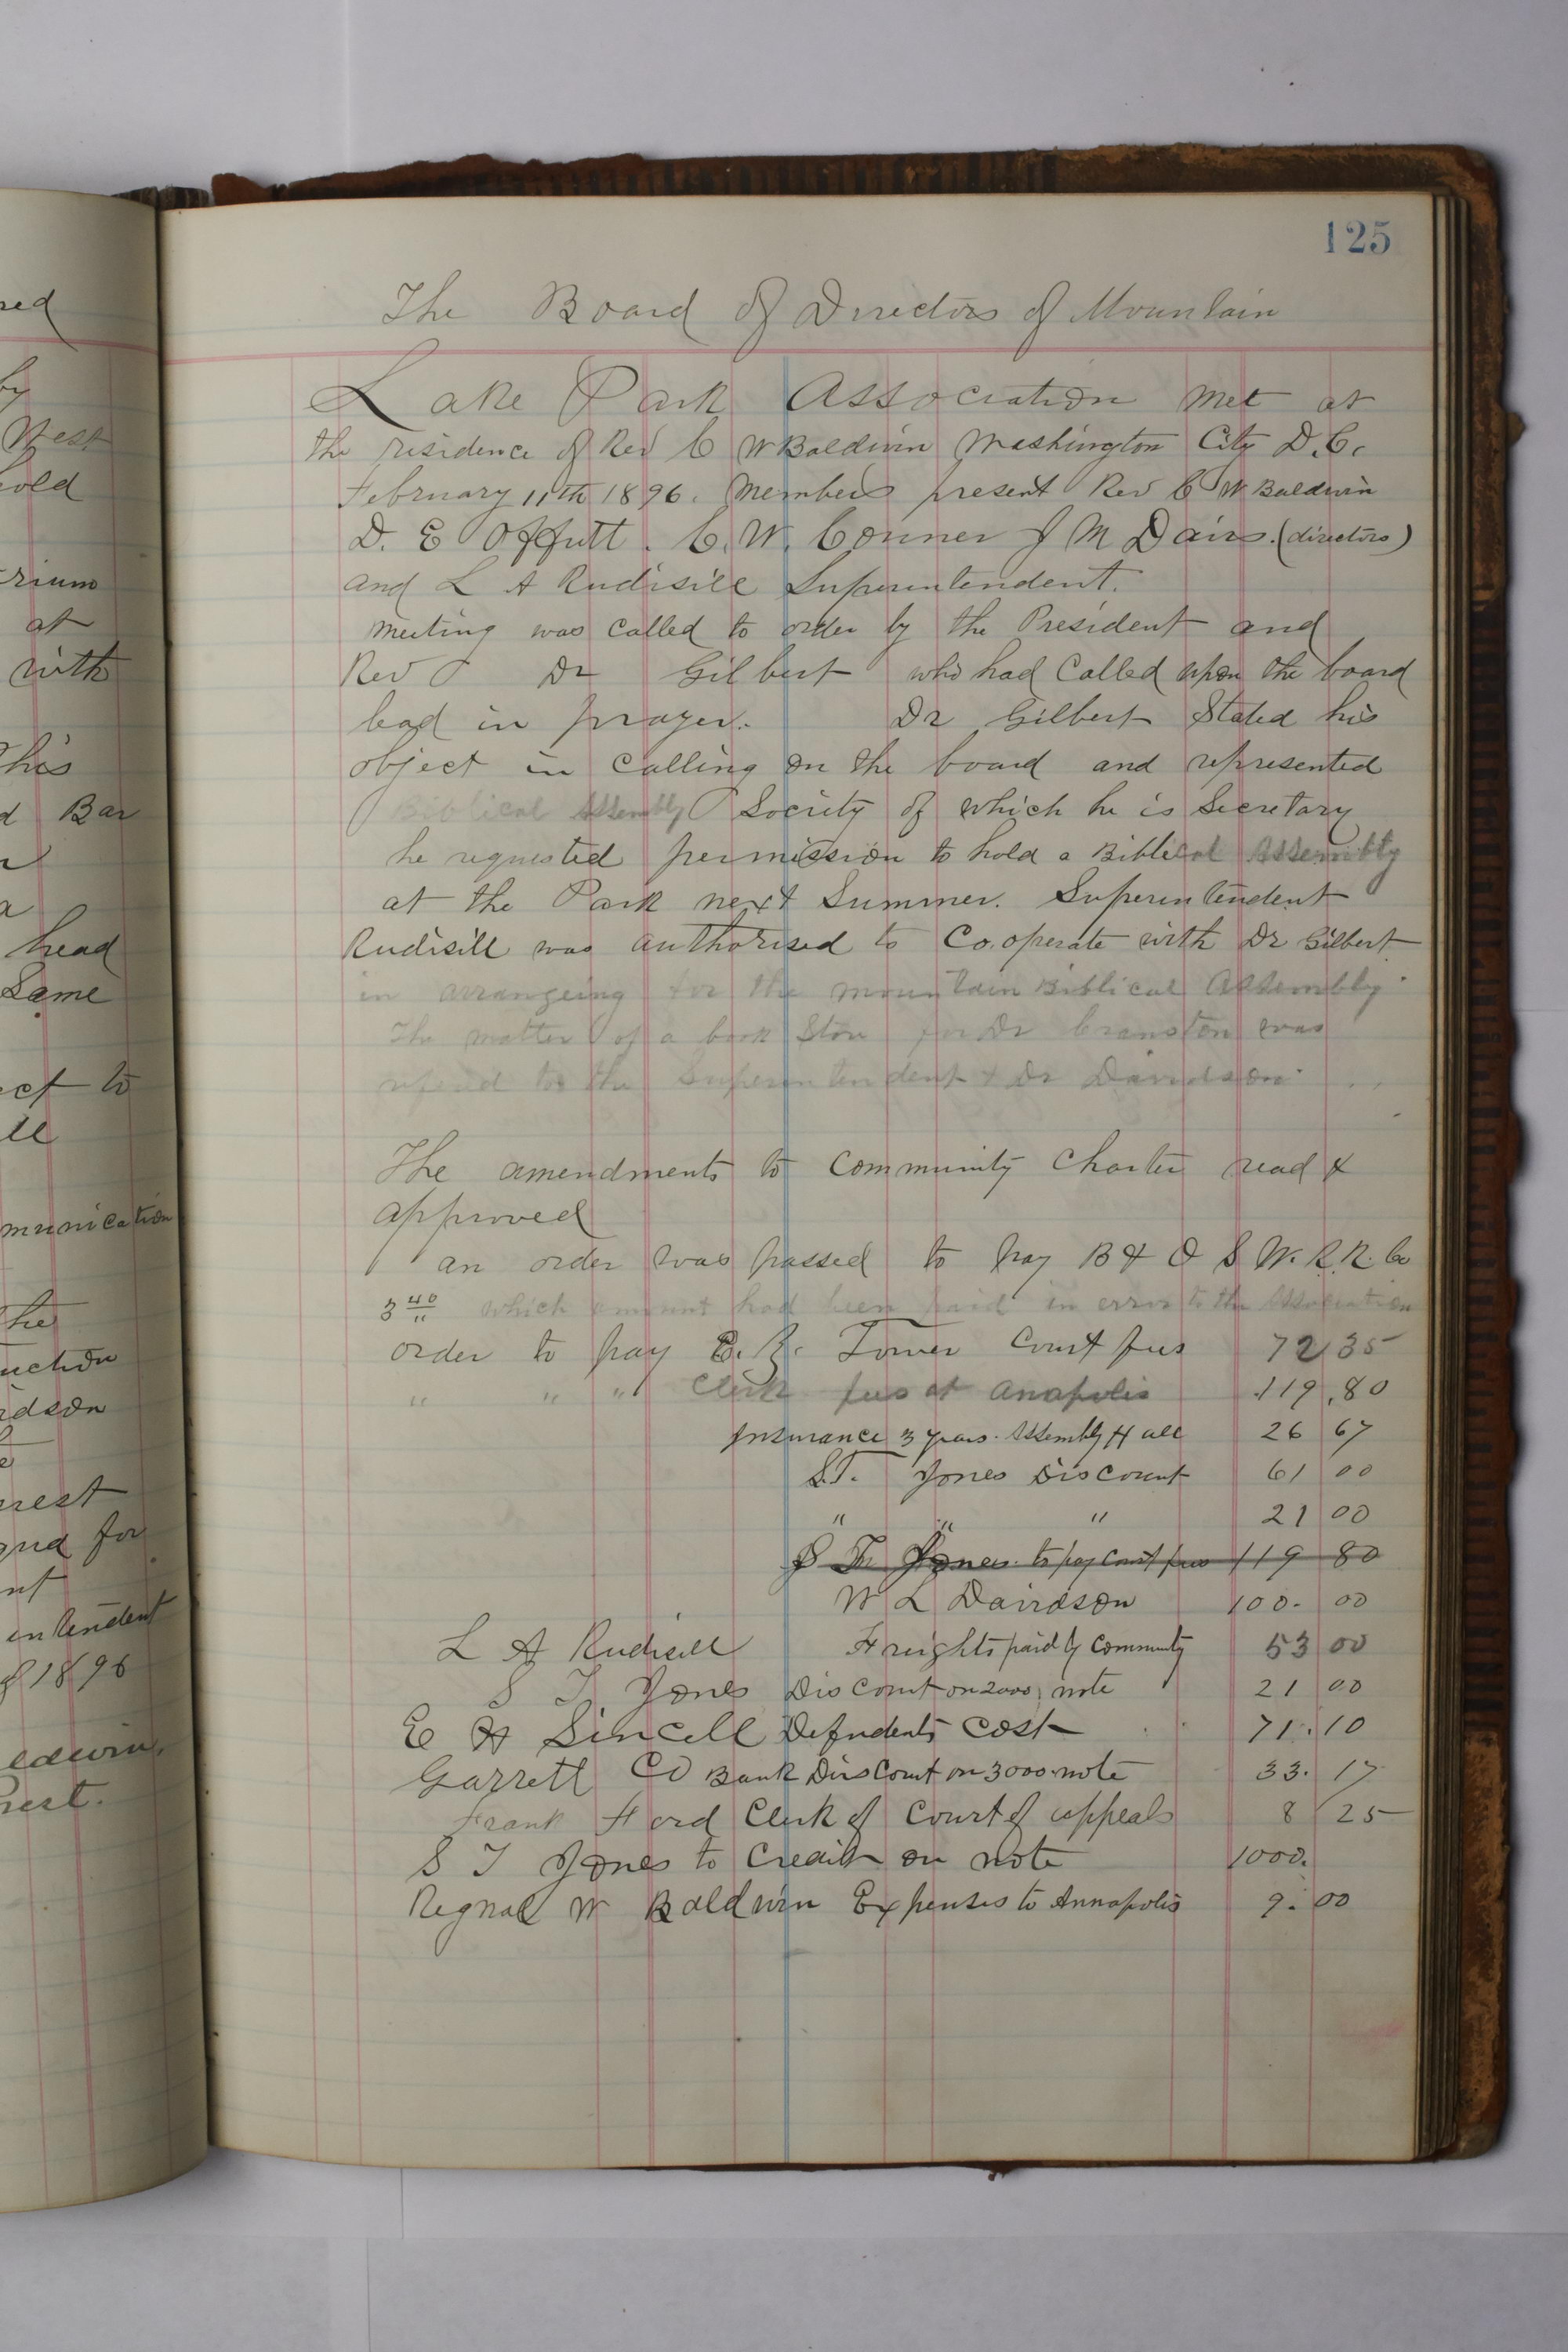 125
The Board of Directors of Mountain
Lake Park Association met at
the residence of Rev C W Baldwin Washington City D.C.
February 11th 1896. Members present Rev C W Baldwin
D. E Offutt. C. W. Conner J M Davis. (directors)
and L A Rudisill Superintendent.
meeting was called to order by the President and
Rev Dr Gilbert who had called upon the board
lead in prayer. Dr Gilbert Stated his
object in calling on the board and represented
Biblical Assembly Society of which he is Secretary
he requested permission to hold a Biblical Assembly
at the Park next Summer. Superintendent
Rudisill was authorised to Co.operate with Dr Gilbert
in arrangeing for the mountain Biblical Assembly.
The matter of a book Store for Dr Cranston was
refered to the Superintendent & Dr Davidson.
The amendments to Community Charter read &
approved
an order was passed to pay B & O S W. R.R. Co
3 40 which amount had been paid in error to the Association
order to pay E. Z. Tower Court fees 72 35
" " " Clerk fees at Anapolis 119.80
Insurance 3 years. Assembly Hall 26 67
S.T. Jones Discount 61 00
" " " 21 00
S T Jones to pay Court fees 119 80
W L Davidson 100. 00
L A Rudisill Freights paid by Community 53 00
S T Jones Discount on 2000 note 21 00
E H Sincell Defendents Cost 71.10
Garrett Co Bank Discount on 3000 note 33. 17
Frank Ford Clerk of Court of appeals 8 25
S T Jones to Credit on note 1000.
Regnal W Baldwin Expenses to Annapolis 9.00
West
at
with
This
Bar
head
Same
ect to
munication
The
for
1896